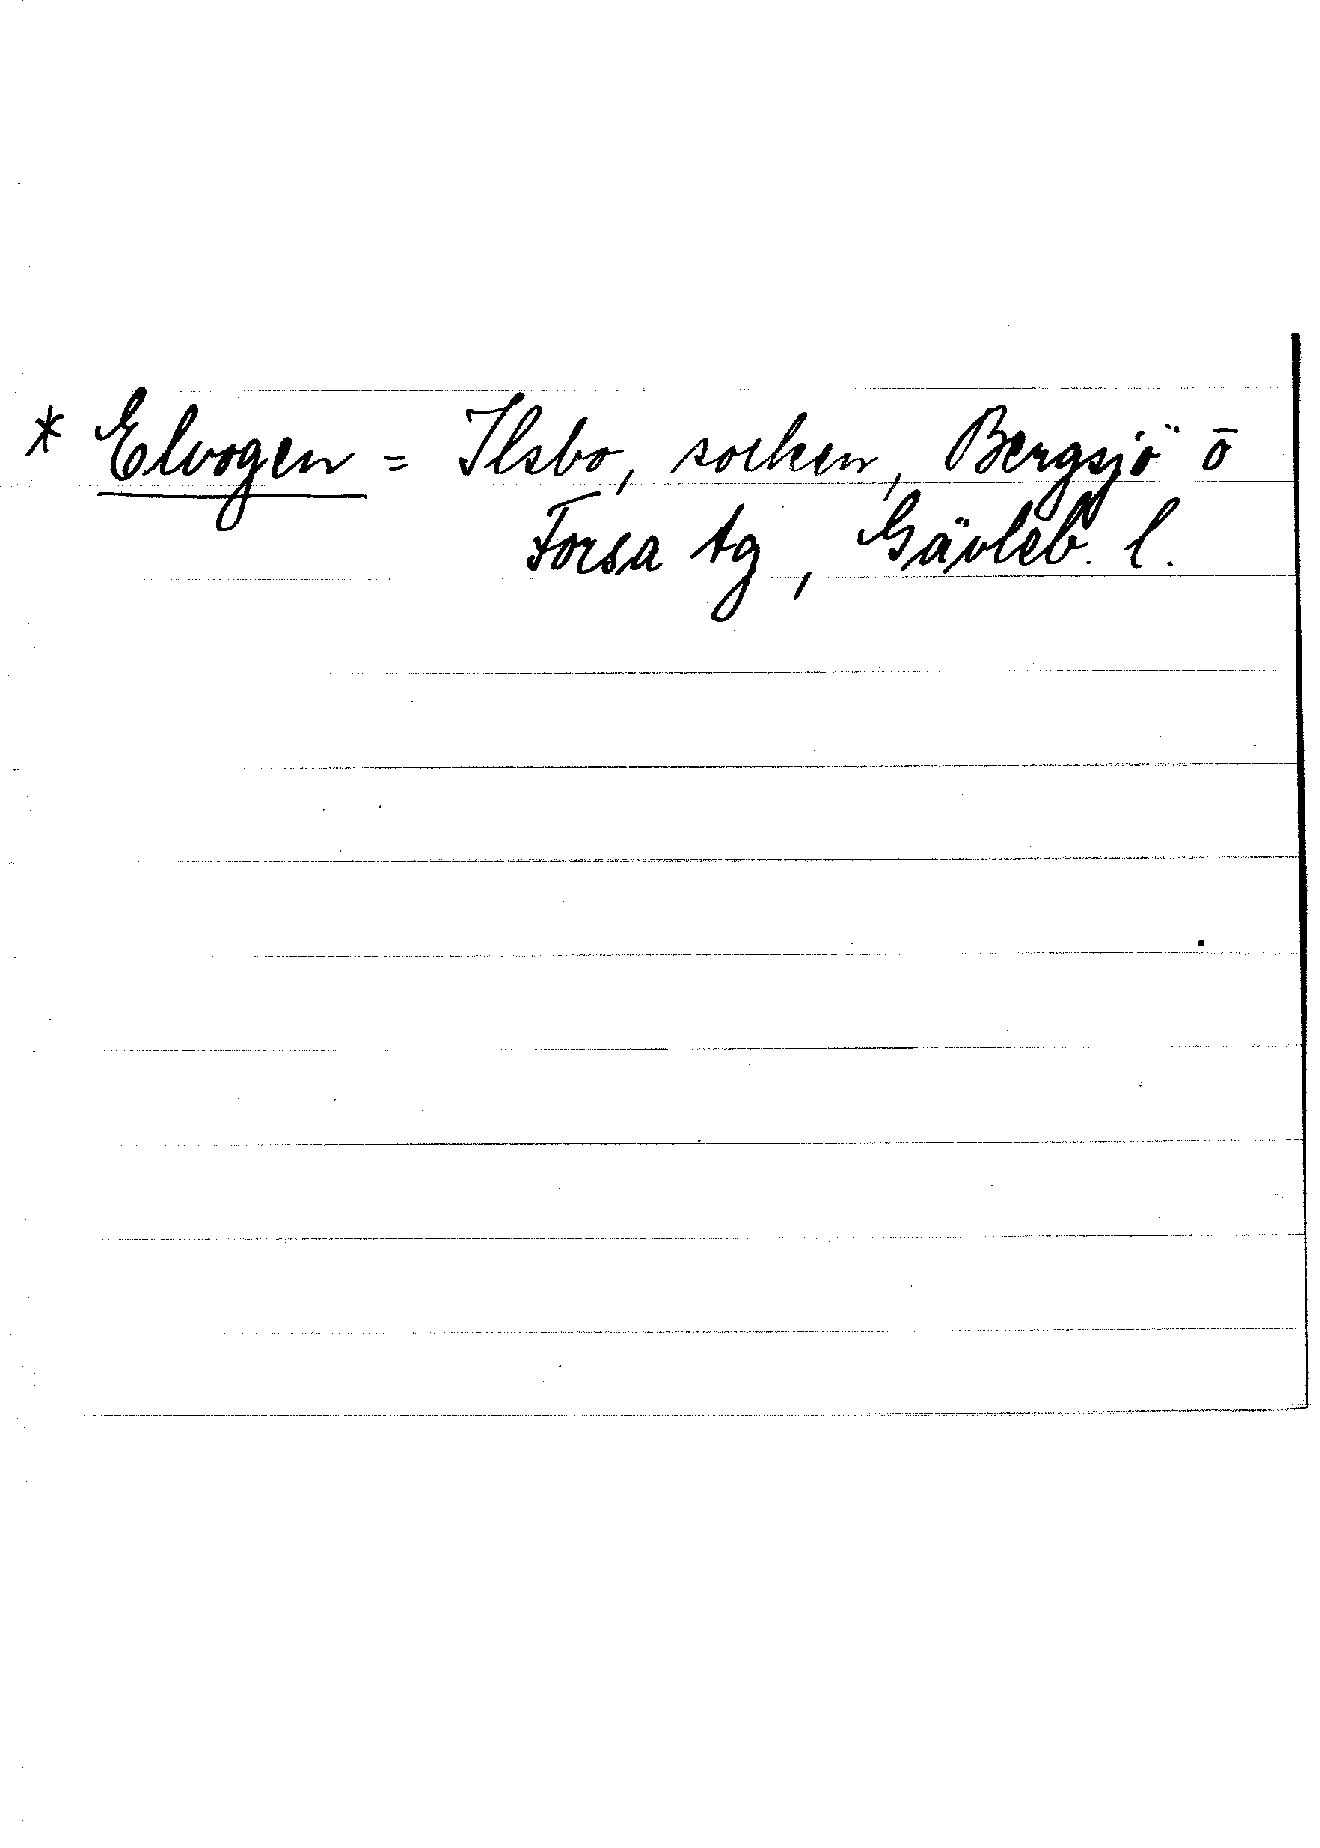 * Elvogen = Ilsbo, socken, Bergsjö o
Forsa tg, Gävleb. l.